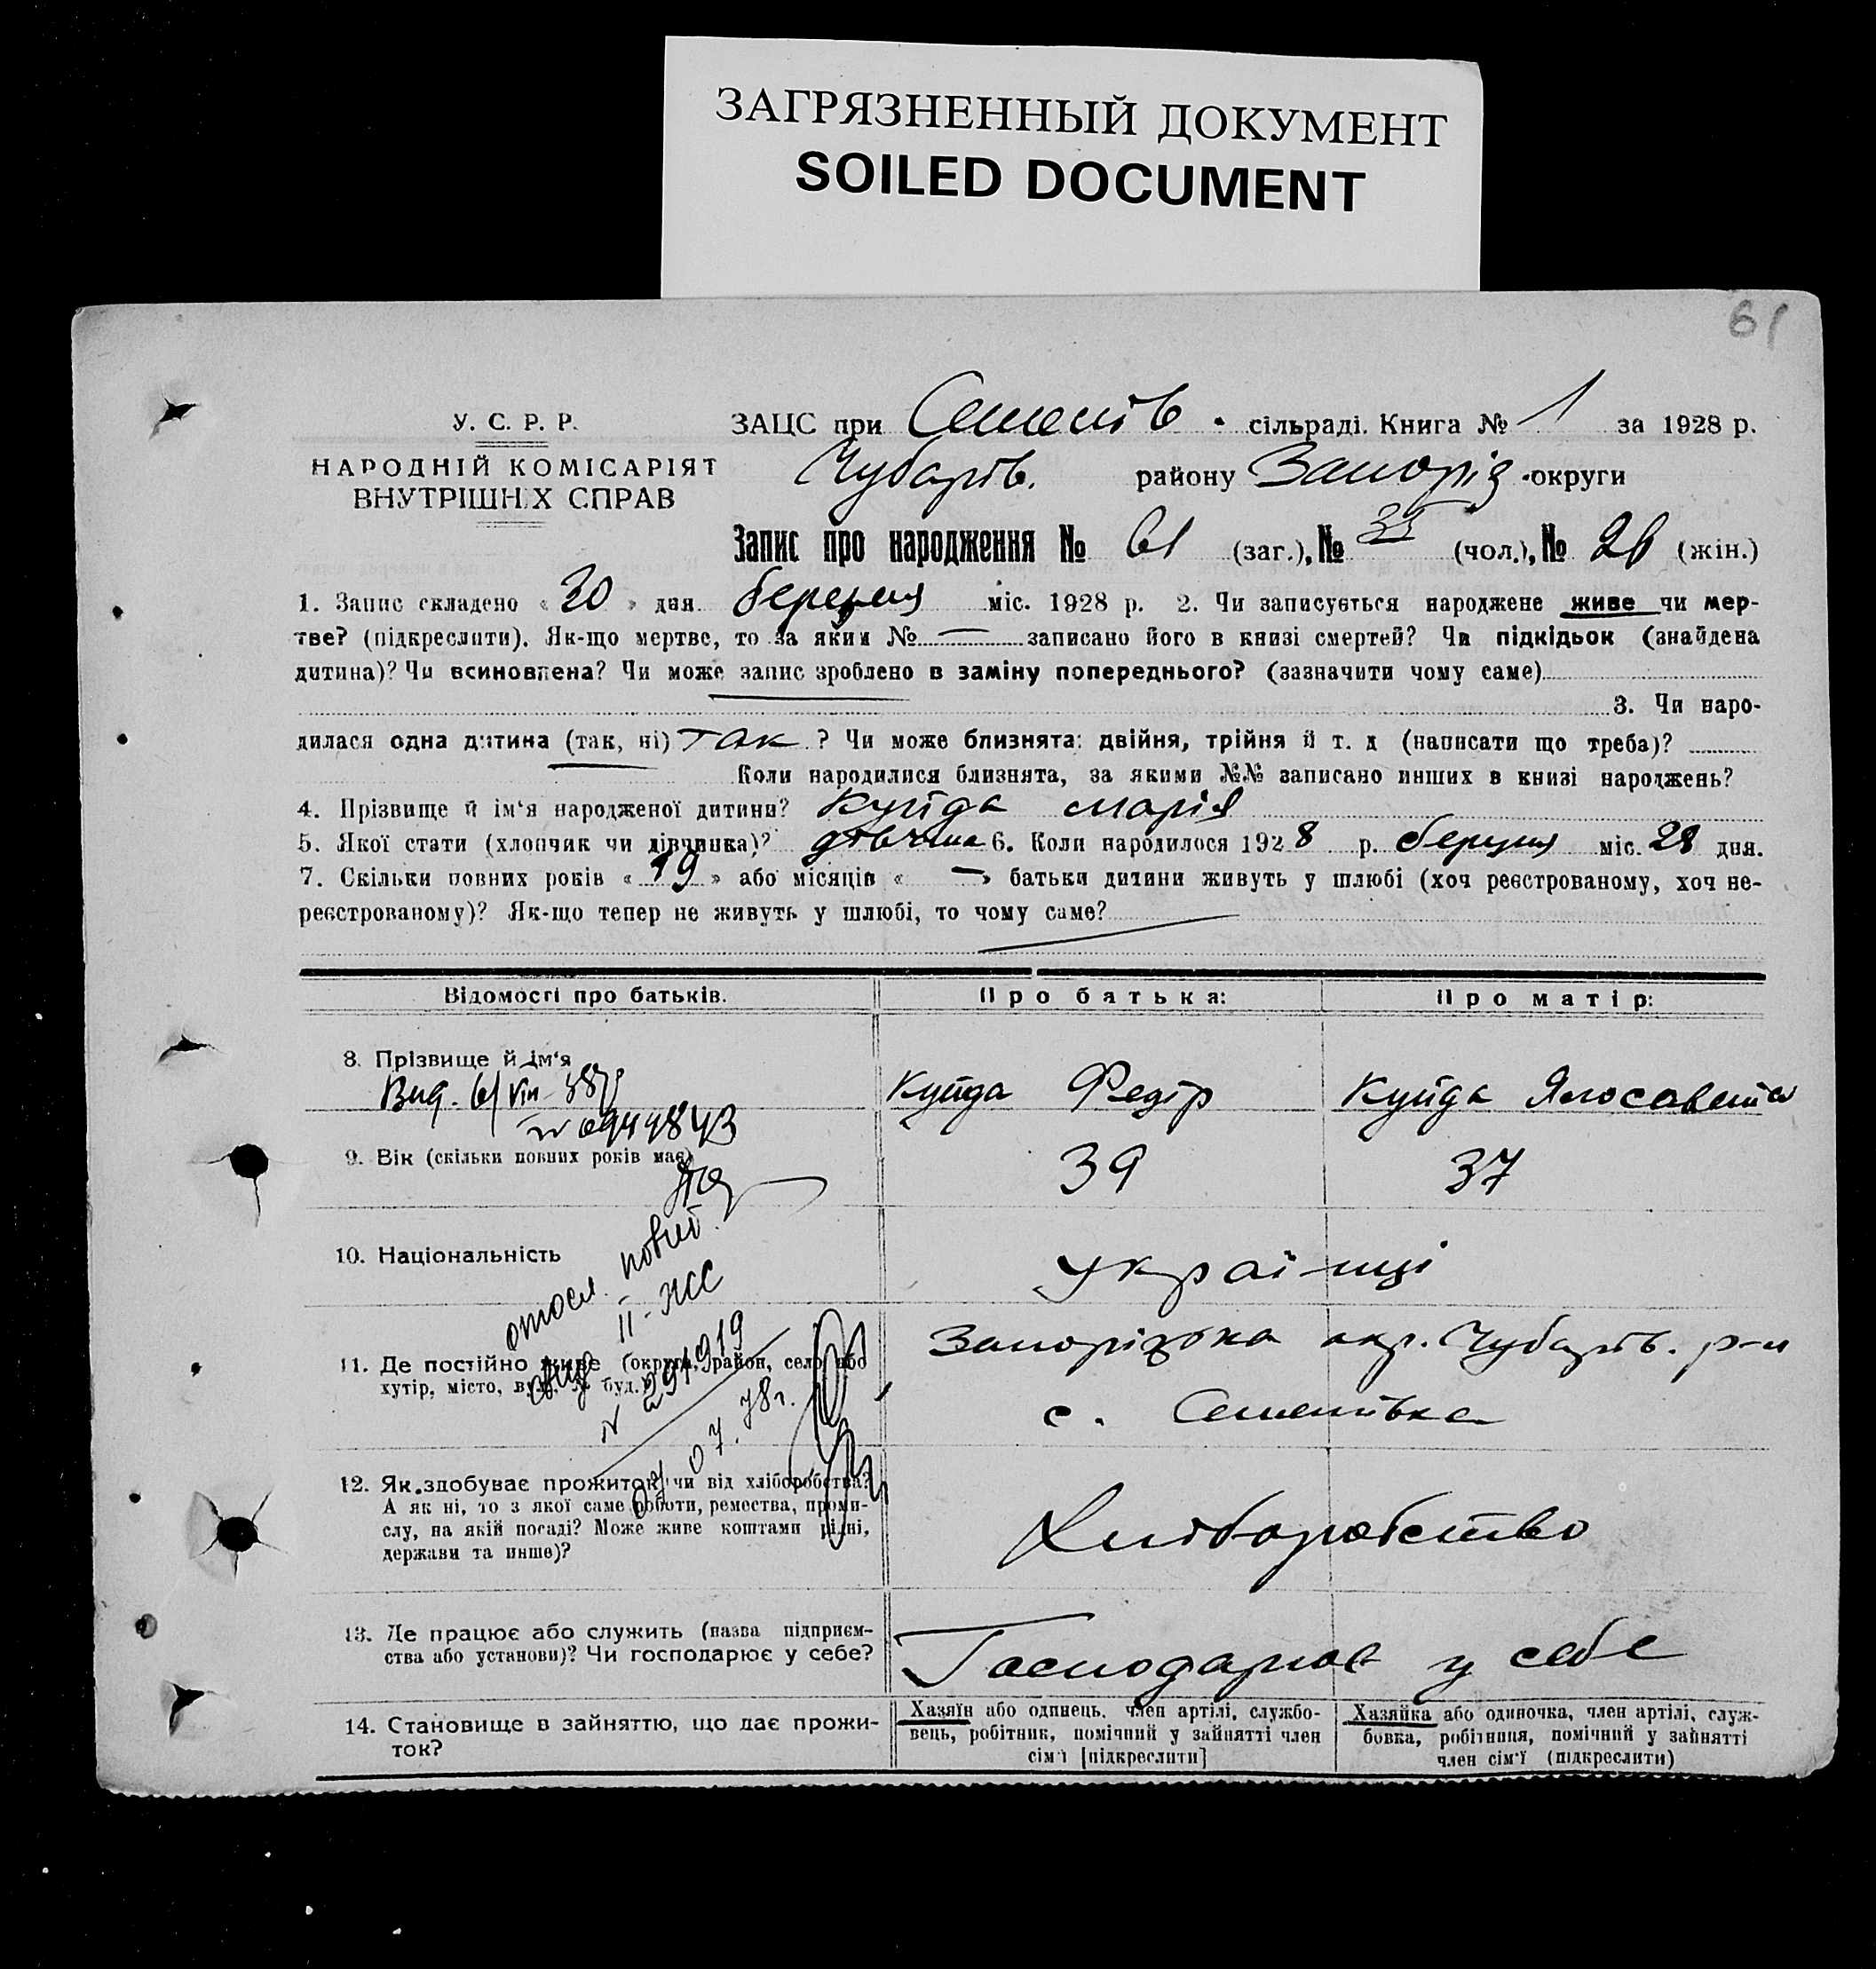 ЗАГРЯЗНЕННЫЙ ДОКУМЕНТ
SOILED DOCUMENT
61
У. С. Р. Р.
НАРОДНІЙ КОМІСАРІЯТ
ВНУТРІШНІХ СПРАВ
ЗАЦС при Семенів. сільраді. Книга № 1 за 1928 р.
Чубарів. району Запоріз. округи
Запис про народження № 61 (заг.), № 35 (чол.), № 26 (жін.)
1. Запис складено « 30 » дня березня міс. 1928 р. 2. Чи записується народжене живе чи мер-
тве? (підкреслити). Як-що мертве, то за яким № — записано його в книзі смертей? Чи підкідьок (знайдена
дитина)? Чи всиновлена? Чи може запис зроблено в заміну попереднього? (зазначити чому саме)
3. Чи наро-
дилася одна дитина (так, ні) так ? Чи може близнята: двійня, трійня й т. д (написати що треба)?
Коли народилися близнята, за якими №№ записано инших в книзі народжень?
4. Прізвище й ім‘я народженої дитини? Куйда Марія
5. Якої стати (хлопчик чи дівчинка)? дівчина 6. Коли народилося 1928 р. березня міс. 28 дня.
7. Скільки повних років « 19 » або місяців « — » батьки дитини живуть у шлюбі (хоч реєстрованому, хоч не-
реєстрованому)? Як-що тепер не живуть у шлюбі, то чому саме?
Відомості про батьків. Про батька: Про матір:
8. Прізвище й ім‘я Куйда Федір Куйда Ялосавета
Вид.
№ 0944843
9. Вік (скільки повних років має) 39 37
10. Національність українці
повіст.
II-ЖС
11. Де постійно живе (округа, район, село або
хутір, місто, вул., № буд.) Запорізька окр. Чубарів. р-н
с. Семенівка
№ 294919
07. 78 г.
12. Як здобуває прожиток: чи від хліборобства?
А як ні, то з якої саме роботи, ремества, проми-
слу, на якій посаді? Може живе коштами рідні,
держави та инше)?
Хліборобство
13. Де працює або служить (назва підприєм-
ства або установи)? Чи господарює у себе?
Господарює у себе
14. Становище в зайняттю, що дає прожи-
ток?
Хазяїн або одинець, член артілі, службо-
вець, робітник, помічний у зайнятті член
сім‘ї [підкреслити]
Хазяйка або одиночка, член артілі, служ-
бовка, робітниця, помічний у зайнятті
член сім‘ї (підкреслити)